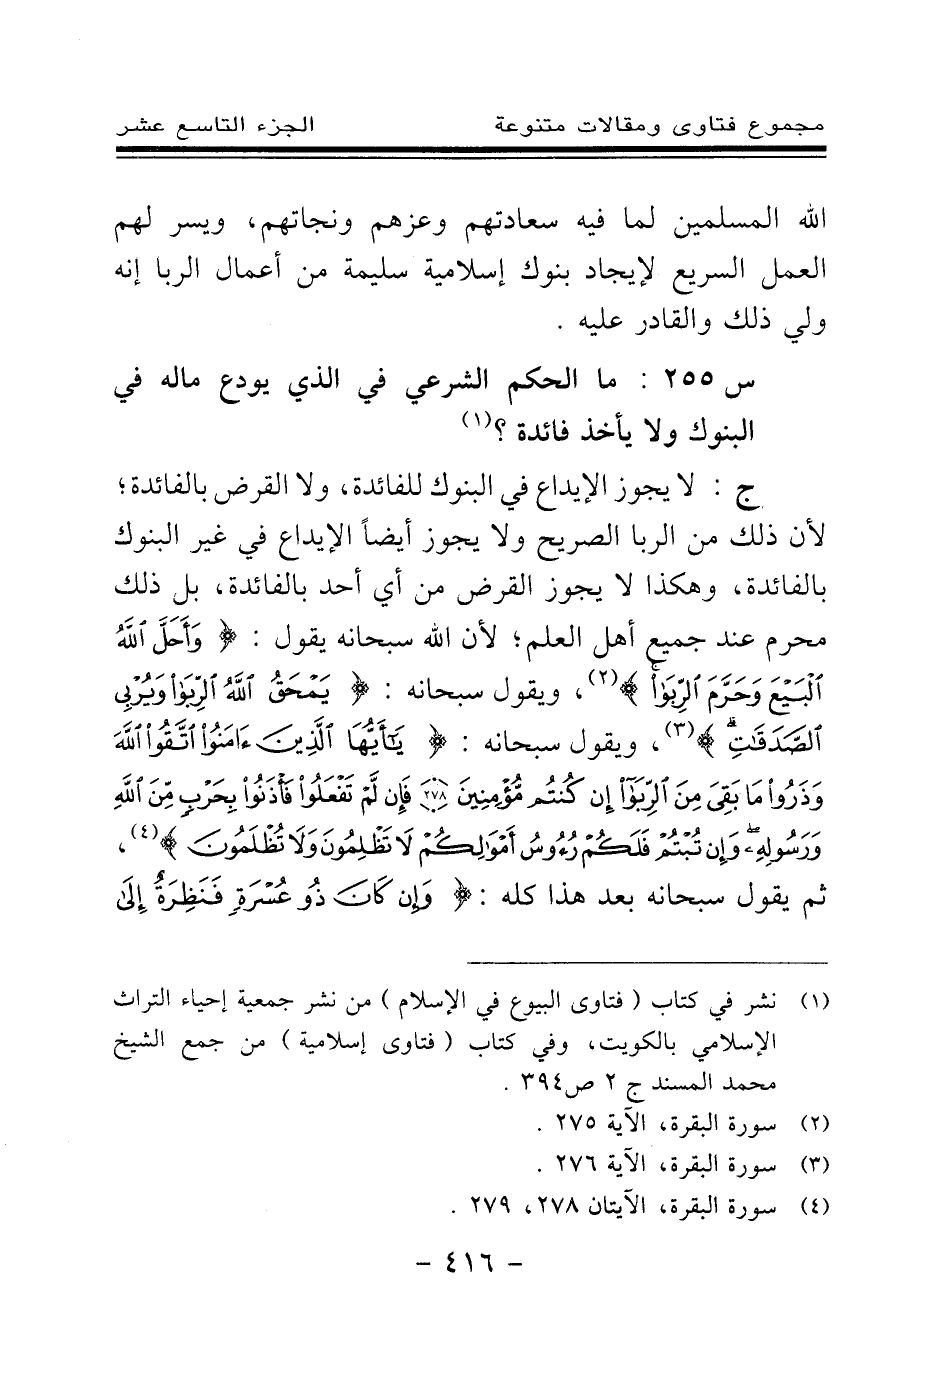 مجموع فتاوى ومقالات متنوعة الجزء التاسع عشر
الله المسلمين لما فيه سعادتهم وعزهم ونجاتهم، ويسر لهم
العمل السريع لإيجاد بنوك إسلامية سليمة من أعمال الربا إنه
ولي ذلك والقادر عليه .
س ٢٥٥ : ما الحكم الشرعي في الذي يودع ماله في
البنوك ولا يأخذ فائدة ؟(١)
ج : لا يجوز الإيداع في البنوك للفائدة، ولا القرض بالفائدة؛
لأن ذلك من الربا الصريح ولا يجوز أيضاً الإيداع في غير البنوك
بالفائدة، وهكذا لا يجوز القرض من أي أحد بالفائدة، بل ذلك
محرم عند جميع أهل العلم؛ لأن الله سبحانه يقول : ﴿ وَأَحَلَّ ٱللَّهُ
ٱلْبَيْعَ وَحَرَّمَ ٱلرِّبَوٰا۟ ﴾(٢)، ويقول سبحانه : ﴿ يَمْحَقُ ٱللَّهُ ٱلرِّبَوٰا۟ وَيُرْبِى
ٱلصَّدَقَـٰتِ ۗ ﴾(٣)، ويقول سبحانه : ﴿ يَـٰٓأَيُّهَا ٱلَّذِينَ ءَامَنُوا۟ ٱتَّقُوا۟ ٱللَّهَ
وَذَرُوا۟ مَا بَقِىَ مِنَ ٱلرِّبَوٰٓا۟ إِن كُنتُم مُّؤْمِنِينَ ٢٧٨ فَإِن لَّمْ تَفْعَلُوا۟ فَأْذَنُوا۟ بِحَرْبٍ مِّنَ ٱللَّهِ
وَرَسُولِهِۦ ۖ وَإِن تُبْتُمْ فَلَكُمْ رُءُوسُ أَمْوَٰلِكُمْ لَا تَظْلِمُونَ وَلَا تُظْلَمُونَ ﴾(٤)،
ثم يقول سبحانه بعد هذا كله : ﴿ وَإِن كَانَ ذُو عُسْرَةٍ فَنَظِرَةٌ إِلَىٰ
(١) نشر في كتاب ( فتاوى البيوع في الإسلام ) من نشر جمعية إحياء التراث
الإسلامي بالكويت، وفي كتاب ( فتاوى إسلامية ) من جمع الشيخ
محمد المسند ج ٢ ص٣٩٤ .
(٢) سورة البقرة، الآية ٢٧٥ .
(٣) سورة البقرة، الآية ٢٧٦ .
(٤) سورة البقرة، الآيتان ٢٧٨، ٢٧٩ .
- ٤١٦ -